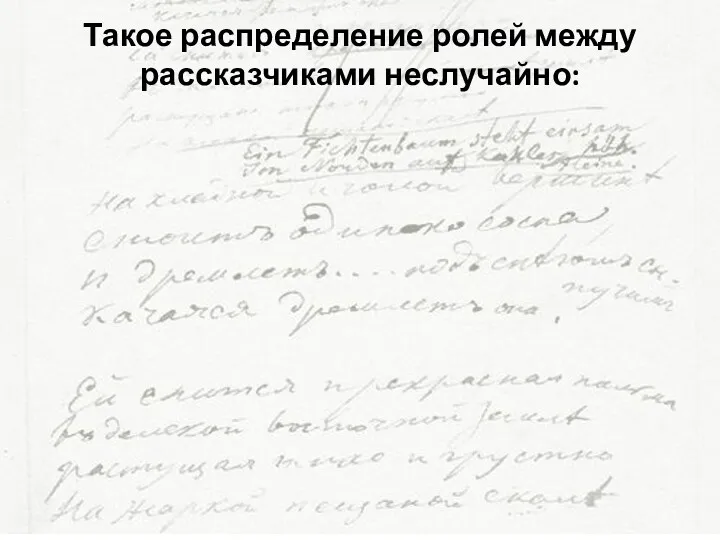 Такое распределение ролей между
рассказчиками неслучайно:
Ein Fichtenbaum steht einsam
Im Norden auf kahler Höh.
На хладной и голой вершинѣ
Стоитъ одиноко сосна,
И дремлетъ.... подъ снѣгомъ сы-
пучимъ
Качаяся дремлетъ она.
Ей снится прекрасная пальма
въ далекой восточной землѣ
растущая тихо и грустно
На жаркой песчаной скалѣ